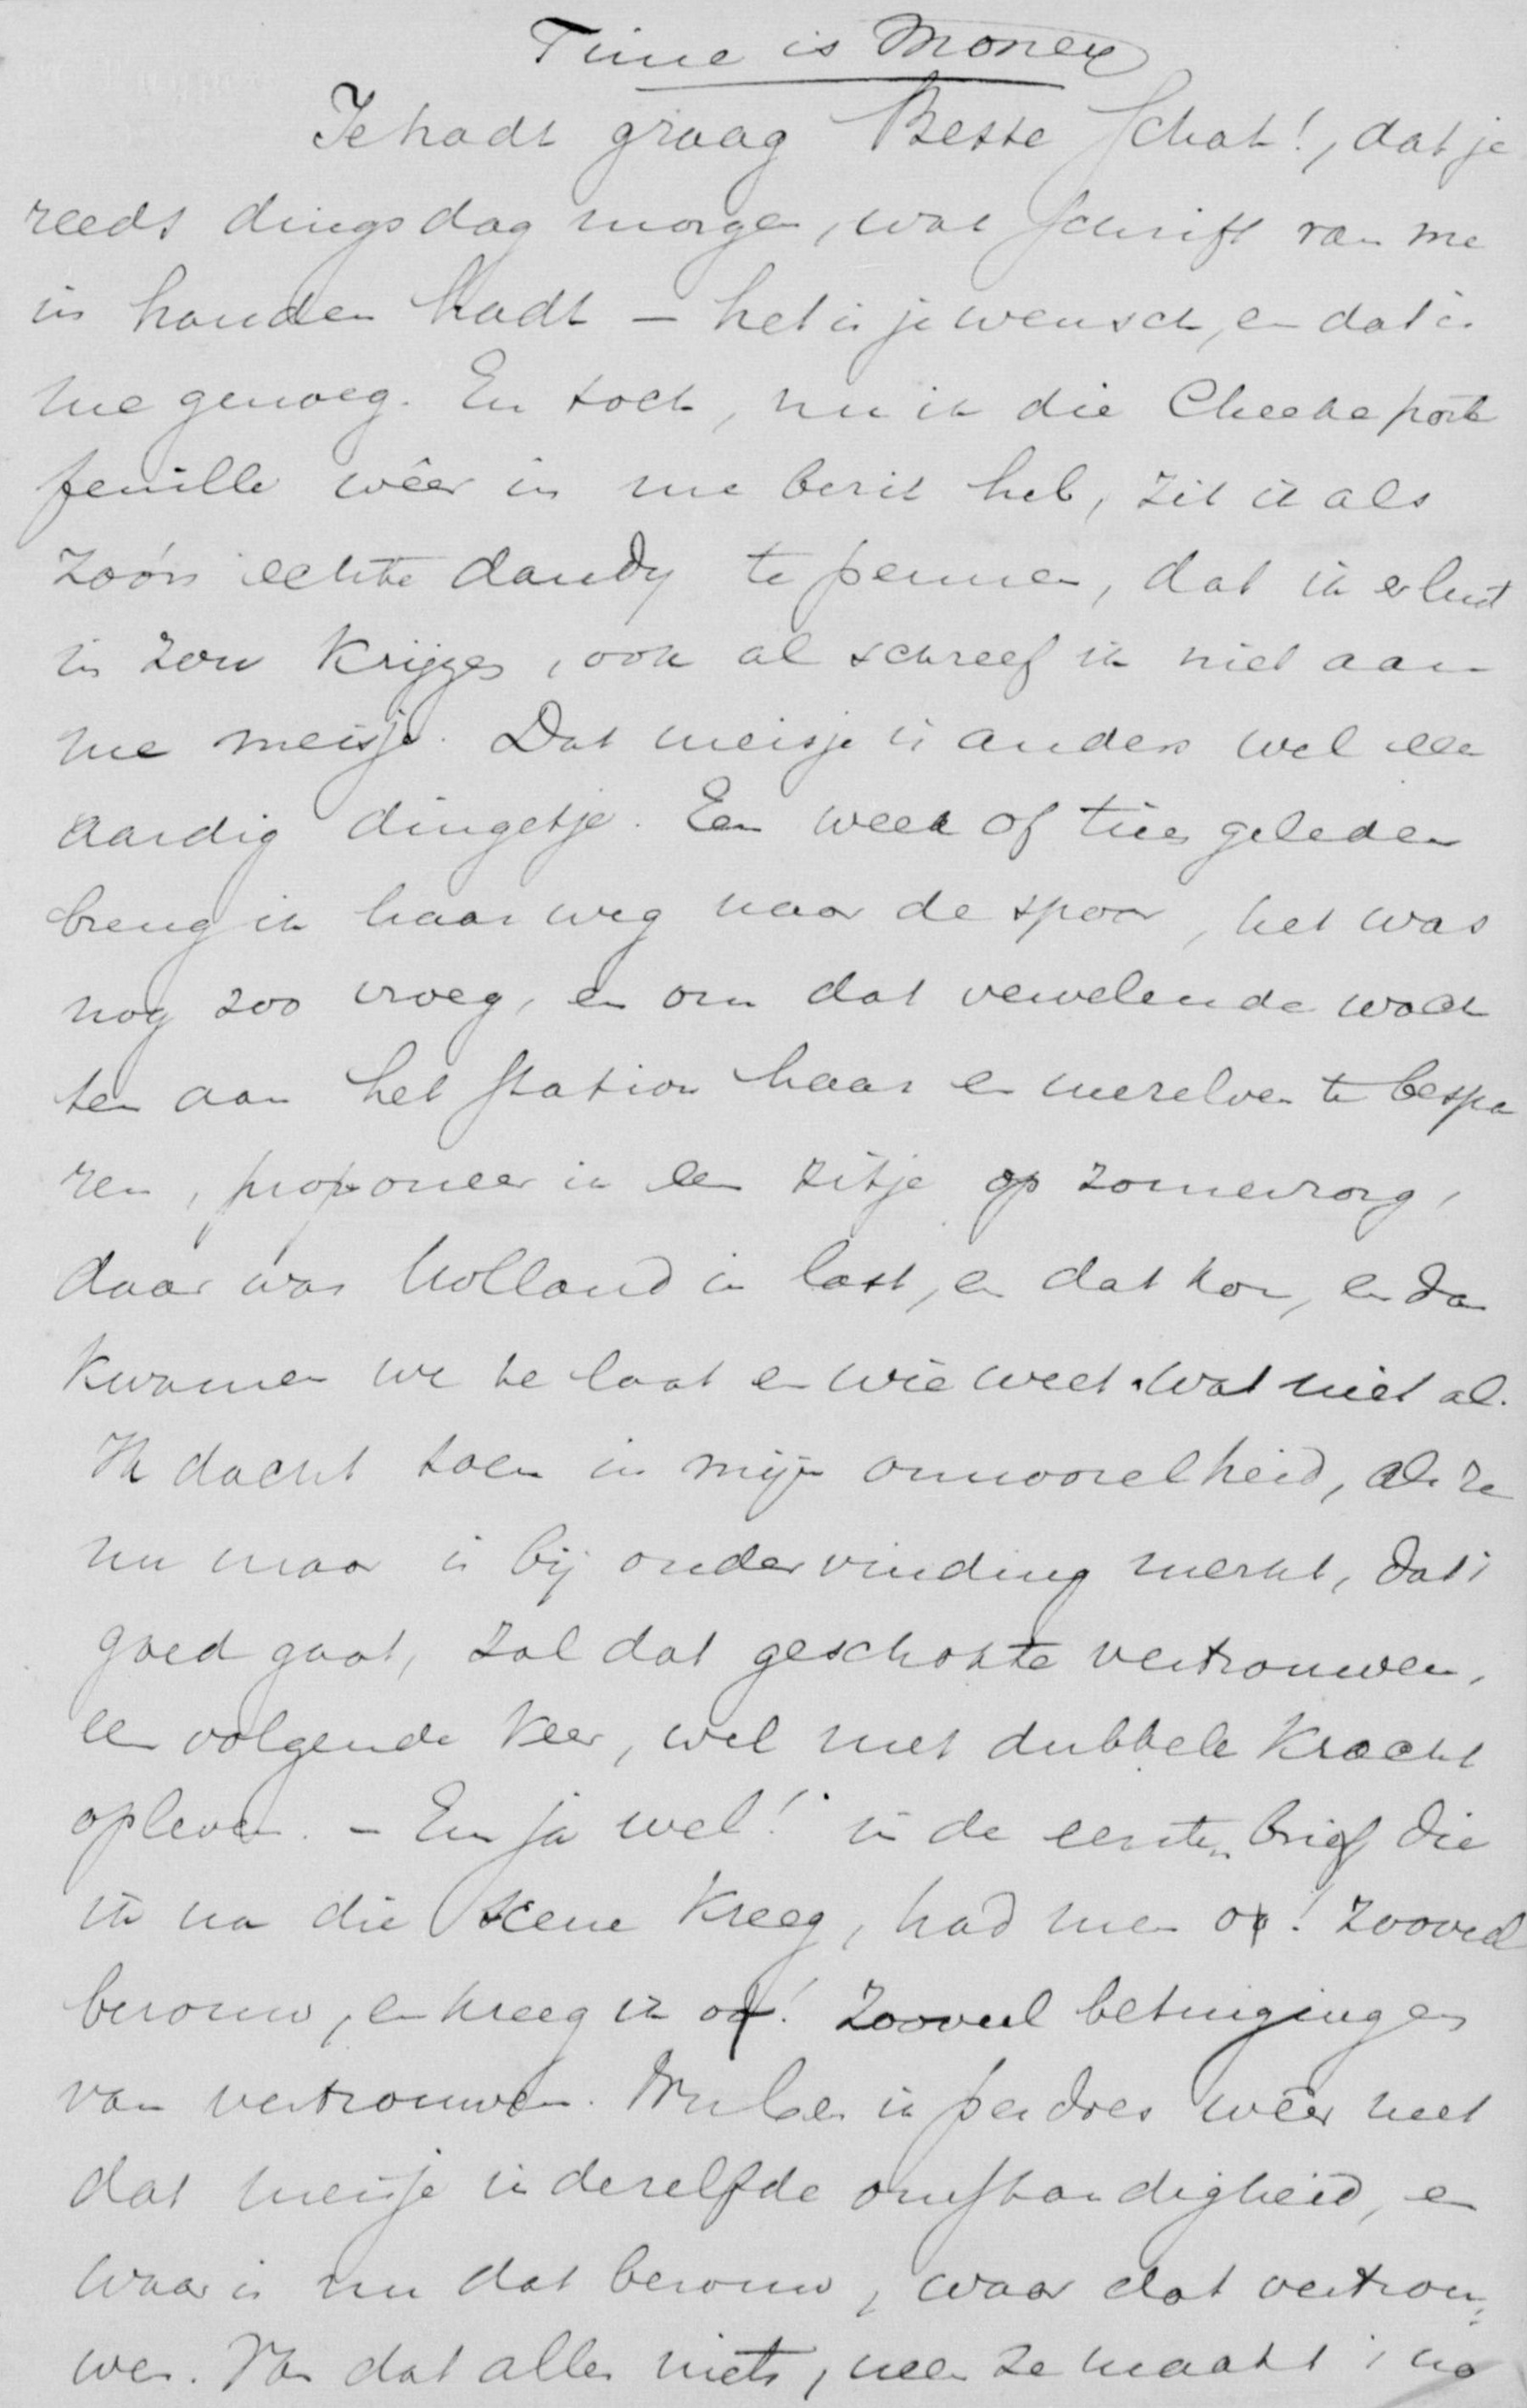 Time is Money
Je hadt graag Beste Schat!, dat je
reeds dingsdag morgen, wat schrift van me
in handen hadt – het is je wensch, en dat is
me genoeg. En toch, nu ik die Cheeke porte
feuille wêer in me bezit heb, zit ik als
zoo'n echte dandy te pennen, dat ik er lust
in zou krijgen, ook al schreef ik niet aan
me meisje. Dat meisje is anders wel een
aardig dingetje. Een week of tien geleden
breng ik haar weg naar de spoor, het was
nog zoo vroeg, en om dat vervelende wach
ten aan het station haar en mezelven te bespa
ren, proponeer ik een zitje op zomerzorg,
daar was Holland in last, en dat kon, en dan
kwamen we te laat en wie weet wat niet al.
Ik dacht toen in mijn onnoozelheid, als ze
nu maar is bij ondervinding merkt, dat 't
goed gaat, zal dat geschokte vertrouwen,
een volgende keer, wel met dubbele kracht
opleven. – En ja wel! in de eersten brief die
ik na die scene kreeg, had men o! zooveel
berouw, en kreeg ik o! zooveel betuigingen
van vertrouwen. Nu ben ik per dres wêer met
dat meisje in dezelfde omstandigheid, en
waar is nu dat berouw, waar dat vertrou,
wen. Van dat alles niets, neen ze maakt 't no